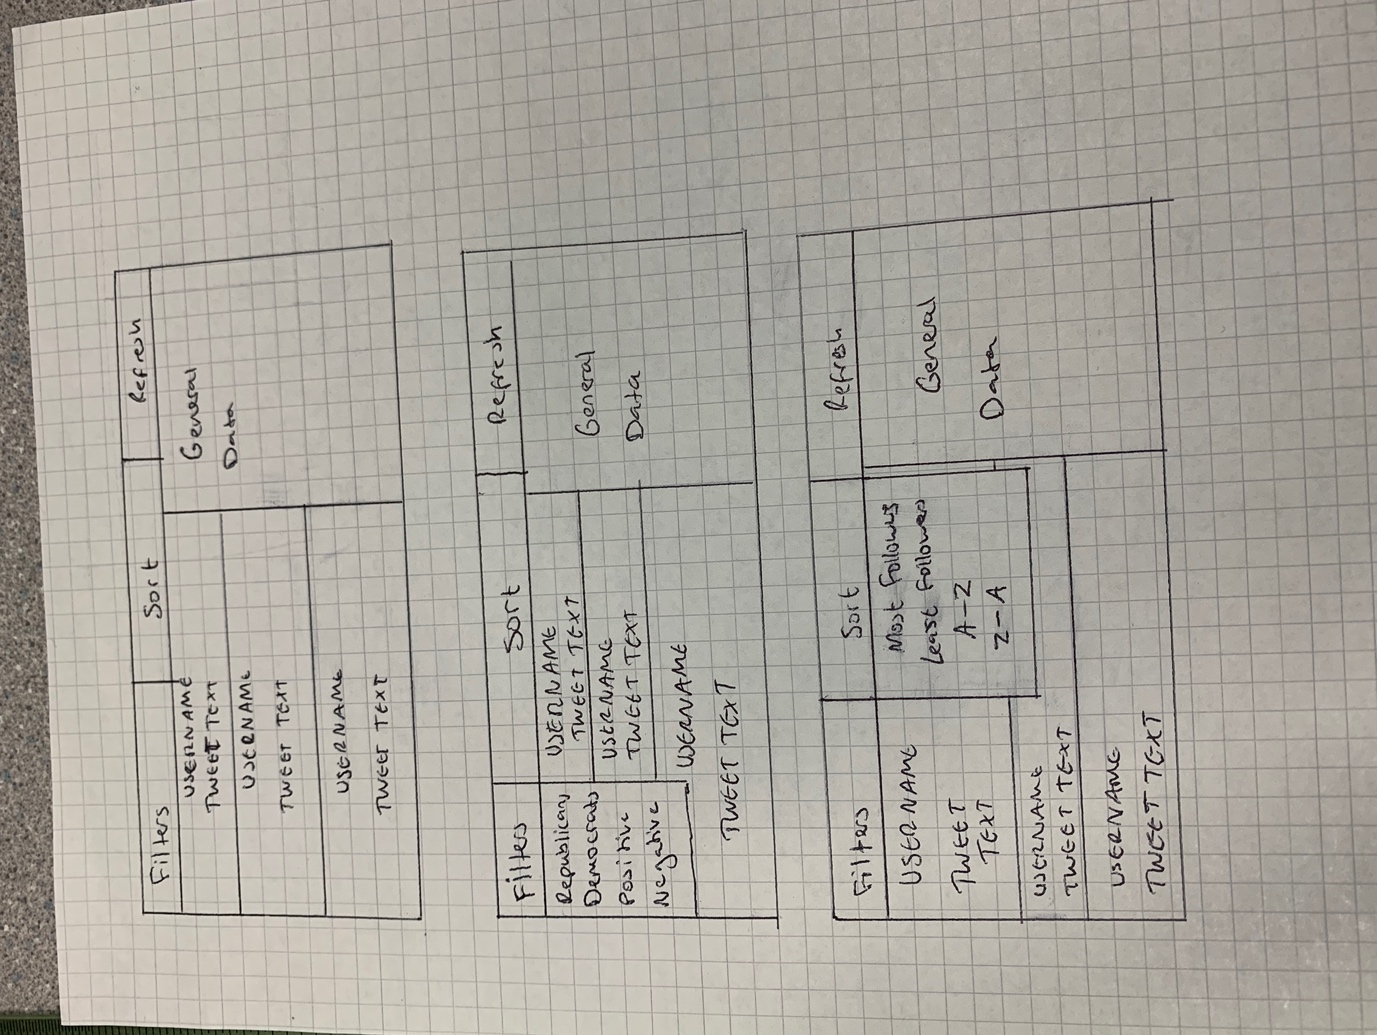 Filters Sort Refresh
USERNAME
TWEET TEXT
USERNAME
TWEET TEXT
USERNAME
TWEET TEXT
General
Data
Filters Sort Refresh
Republicans
Democrats
Positive
Negative
USERNAME
TWEET TEXT
USERNAME
TWEET TEXT
USERNAME
TWEET TEXT
General
Data
Filters Sort Refresh
Most Followers
Least Followers
A-Z
Z-A
USERNAME
TWEET
TEXT
USERNAME
TWEET TEXT
USERNAME
TWEET TEXT
General
Data